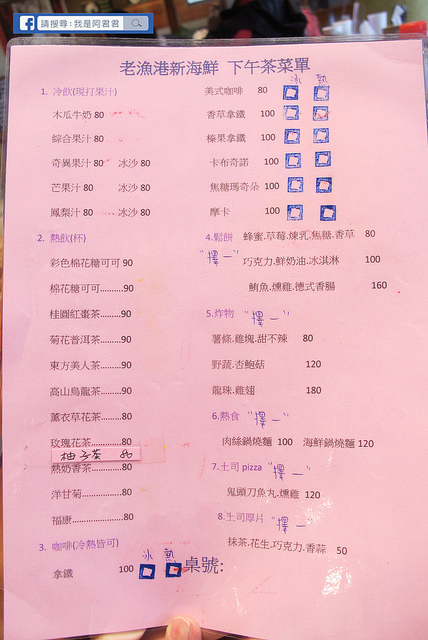 請搜尋:我是阿君君
老漁港新海鮮 下午茶菜單
1. 冷飲(現打果汁)
木瓜牛奶 80
綜合果汁 80
奇異果汁 80 冰沙 80
芒果汁 80 冰沙 80
鳳梨汁 80 冰沙 80
2. 熱飲(杯)
彩色棉花糖可可 90
棉花糖可可..........90
桂圓紅棗茶.........90
菊花普洱茶.........90
東方美人茶.........90
高山烏龍茶.........90
薰衣草花茶.........80
玫瑰花茶..............80
柚子茶 80
熱奶香茶..............80
洋甘菊..................80
福康......................80
3. 咖啡(冷熱皆可)
冰 熱
拿鐵 100
冰 熱
美式咖啡 80
香草拿鐵 100
榛果拿鐵 100
卡布奇諾 100
焦糖瑪奇朵 100
摩卡 100
4.鬆餅 蜂蜜.草莓.煉乳.焦糖.香草 80
"擇一" 巧克力.鮮奶油.冰淇淋 100
鮪魚.燻雞.德式香腸 160
5.炸物 "擇一"
薯條.雞塊.甜不辣 80
野蔬.杏鮑菇 120
龍珠.雞翅 180
6.熱食 "擇一"
肉絲鍋燒麵 100 海鮮鍋燒麵 120
7.土司 pizza "擇一"
鬼頭刀魚丸.燻雞 120
8.土司厚片 "擇一"
抹茶.花生.巧克力.香蒜 50
桌號: